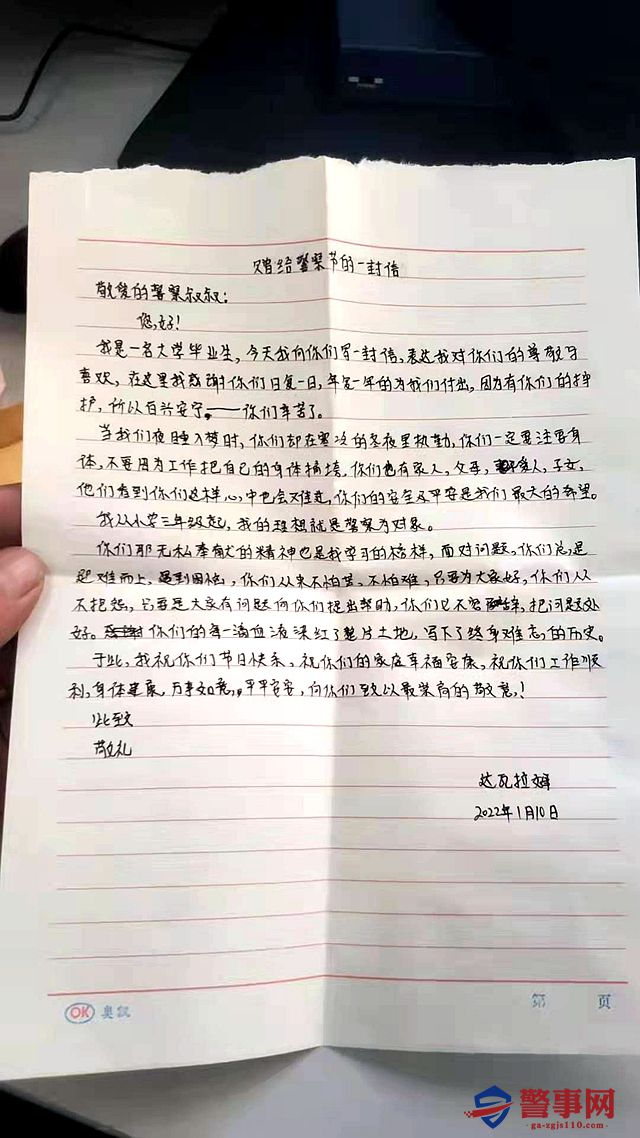 赠给警察节的一封信
敬爱的警察叔叔：
您好！
我是一名大学毕业生，今天我向你们写一封信，表达我对你们的尊敬与
喜欢，在这里我感谢你们日复一日，年复一年的为我们付出，因为有你们的拌
护，所以百兴安宁，——你们辛苦了。
当我们夜睡入梦时，你们却在寒冷的冬夜里执勤，你们一定要注要身
体，不要因为工作把自己的身体搞垮，你们也有家人，父母，爱人，子女，
他们看到你们这样心中也会难过，你们的安全及平安是我们最大的希望。
我从小学三年级起，我的理想就是警察为对象。
你们那无私奉献的精神也是我学习的榜样，面对问题，你们总是
迎难而上，遇到困惱，你们从来不怕苦、不怕难，只要为大家好，你们从
不抱怨，只要是大家有问题向你们提出帮助，你们也不会，把问题处
好。你们的每一滴血液深红了整片土地，写下了终身难忘的历史。
于此，我祝你们节日快乐，祝你们的家庭幸福安康，祝你们工作顺
利，身体健康，万事如意，平平安安，向你们致以最崇高的敬意！
此致
敬礼
达瓦拉姆
2022年1月10日
OK 奥凯
第 页
警事网
ga-zgjs110.com